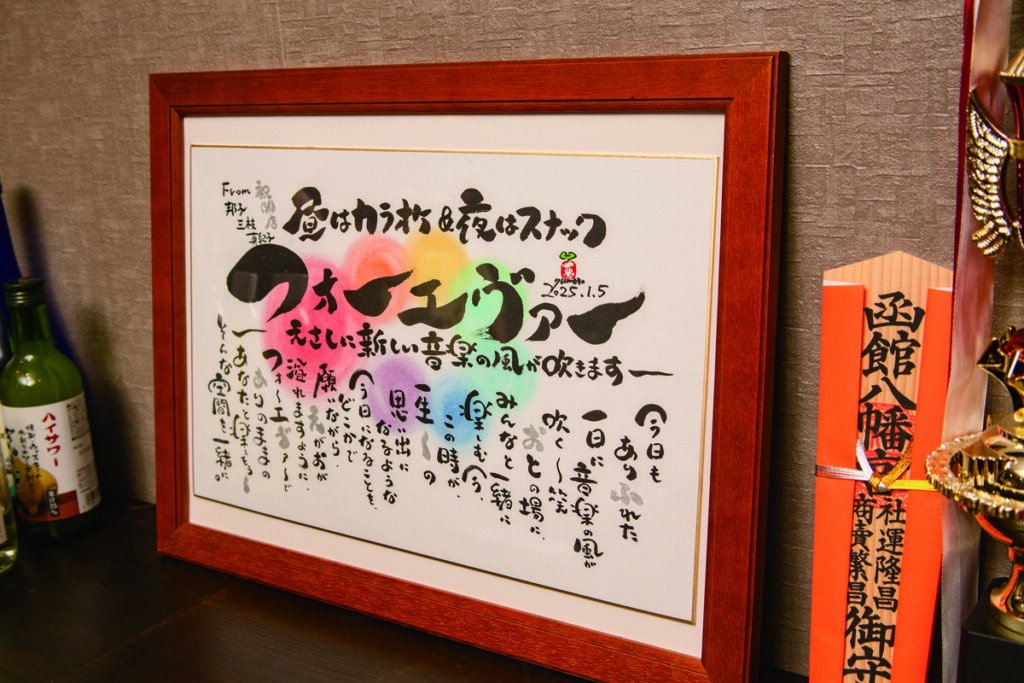 From
祝開店
邦子
三枝
昼はカラオケ&夜はスナック
フォーエヴァー
2025.1.5
えさしに新しい音楽の風が吹きます
今日も
ありふれた
一日に音楽の風が
吹く〜笑
おとの場に、
みんなと一緒に
楽しむ今
この時が、
一生〜の
思い出に
なるような
今日になることを、
どこかで
願いながら、
えがおが
溢れますように、
フォ〜エヴァ〜と
ありのままの
あなたと楽しもう〜
そんな空間を一緒に。
ハイサワー
函館八幡宮
社運隆昌
商売繁昌
御守